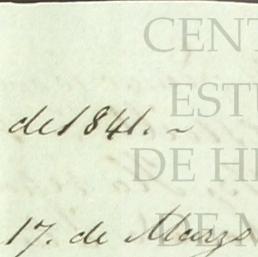 CENT
ESTU
de 1841. ~
DE HI
17. de Marzo
DE M